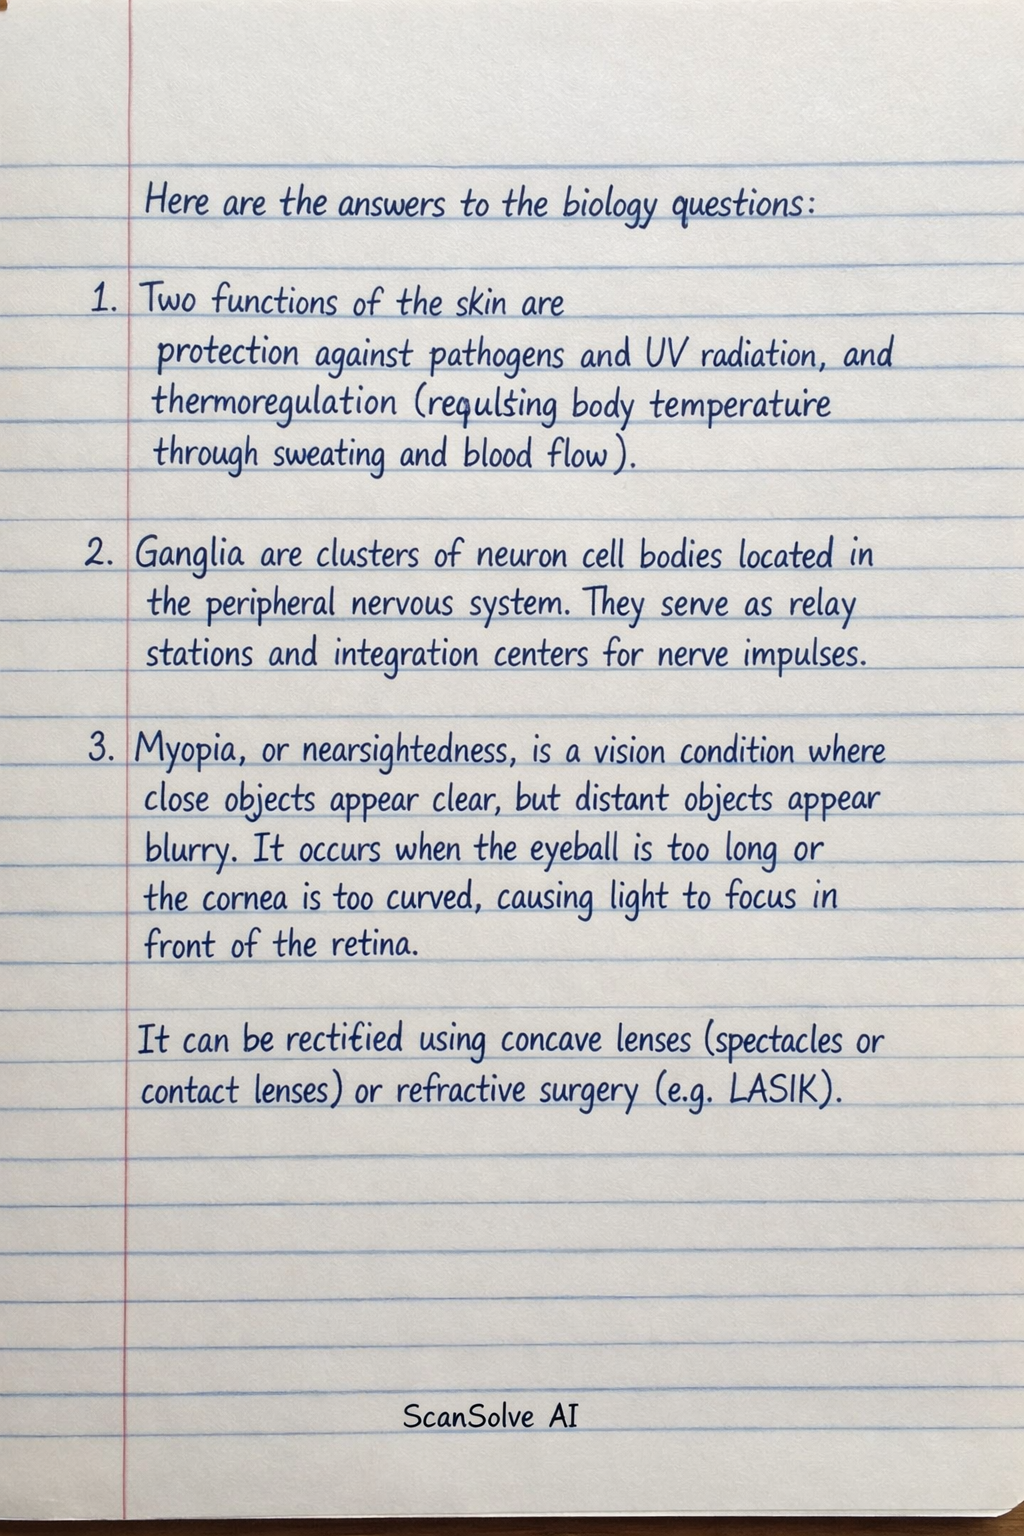 Here are the answers to the biology questions:
1. Two functions of the skin are
protection against pathogens and UV radiation, and
thermoregulation (requlsing body temperature
through sweating and blood flow).
2. Ganglia are clusters of neuron cell bodies located in
the peripheral nervous system. They serve as relay
stations and integration centers for nerve impulses.
3. Myopia, or nearsightedness, is a vision condition where
close objects appear clear, but distant objects appear
blurry. It occurs when the eyeball is too long or
the cornea is too curved, causing light to focus in
front of the retina.
It can be rectified using concave lenses (spectacles or
contact lenses) or refractive surgery (e.g. LASIK).
ScanSolve AI